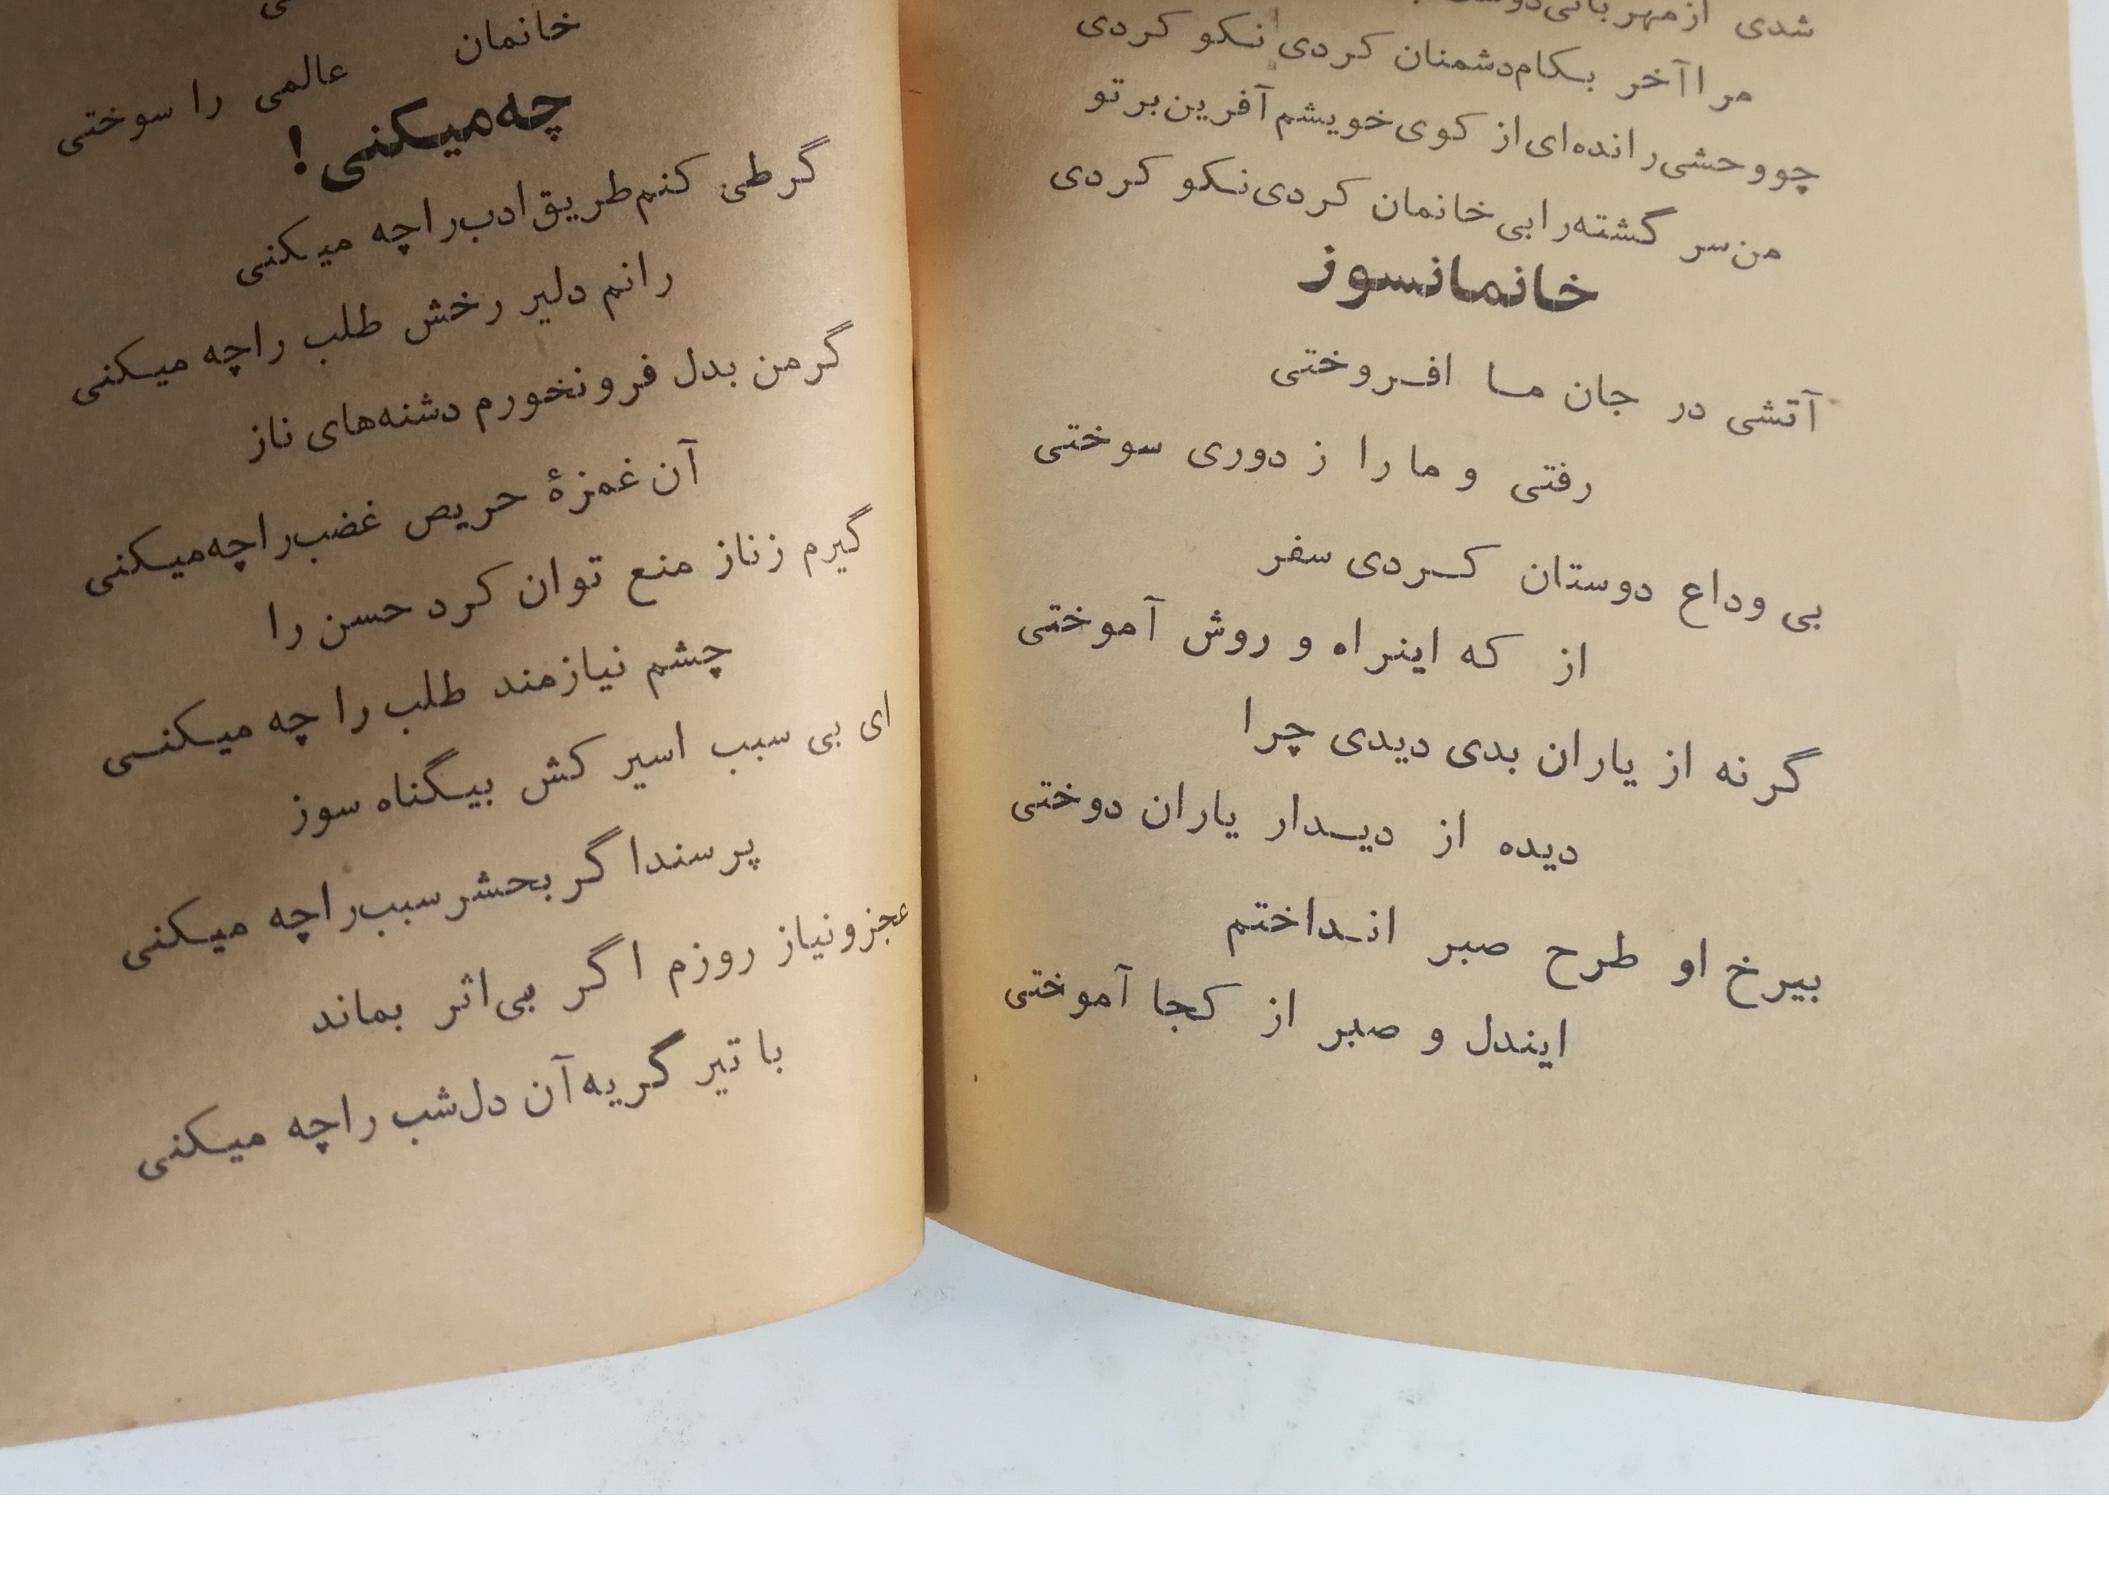 شدی ازمهربانی
مرا آخر بکام‌دشمنان کردی نکو کردی
چووحشی‌رانده‌ای‌از کوی‌خویشم آفرین‌برتو
من‌سر گشته‌رابی‌خانمان کردی‌نکو کردی
خانمانسوز
آتشی در جان ما افروختی
رفتی و ما را ز دوری سوختی
بی وداع دوستان کردی سفر
از که اینراه و روش آموختی
گر نه از یاران بدی دیدی چرا
دیده از دیدار یاران دوختی
بیرخ او طرح صبر انداختم
ایندل و صبر از کجا آموختی
خانمان عالمی را سوختی
چه‌میکنی!
گرطی کنم‌طریق‌ادب‌راچه میکنی
رانم دلیر رخش طلب راچه میکنی
گرمن بدل فرونخورم دشنه‌های ناز
آن غمزهٔ حریص غضب‌راچه‌میکنی
گیرم زناز منع توان کرد حسن را
چشم نیازمند طلب را چه میکنی
ای بی سبب اسیر کش بیگناه سوز
پرسنداگر بحشر سبب‌راچه میکنی
عجزونیاز روزم اگر بی‌اثر بماند
با تیر گریه‌آن دل‌شب راچه میکنی